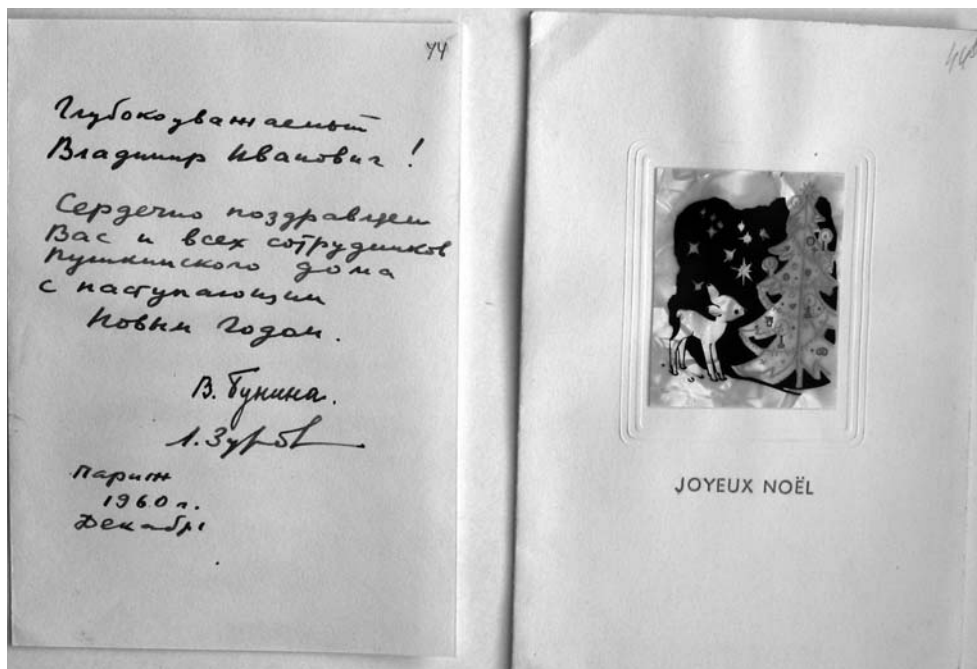 44
Глубокоуважаемый
Владимир Иванович!
Сердечно поздравляем
Вас и всех сотрудников
Пушкинского дома
с наступающим
Новым Годом.
В. Бунина.
Л. Зуров
Париж
1960 г.
Декабрь
JOYEUX NOËL